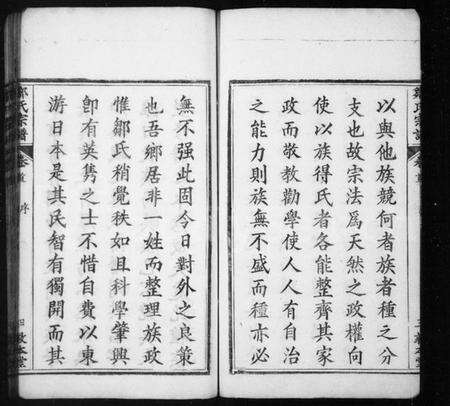 以與他族競何者族者種之分
支也故宗法爲天然之政權向
使以族得氏者各能整齊其家
政而敬教勸學使人人有自治
之能力則族無不盛而種亦必
無不强此固今日對外之良策
也吾鄉居非一姓而整理族政
惟鄒氏稍覺秩如且科學肇興
卽有英雋之士不惜自費以東
游日本是其民智有獨開而其
鄒氏宗譜
卷首
序